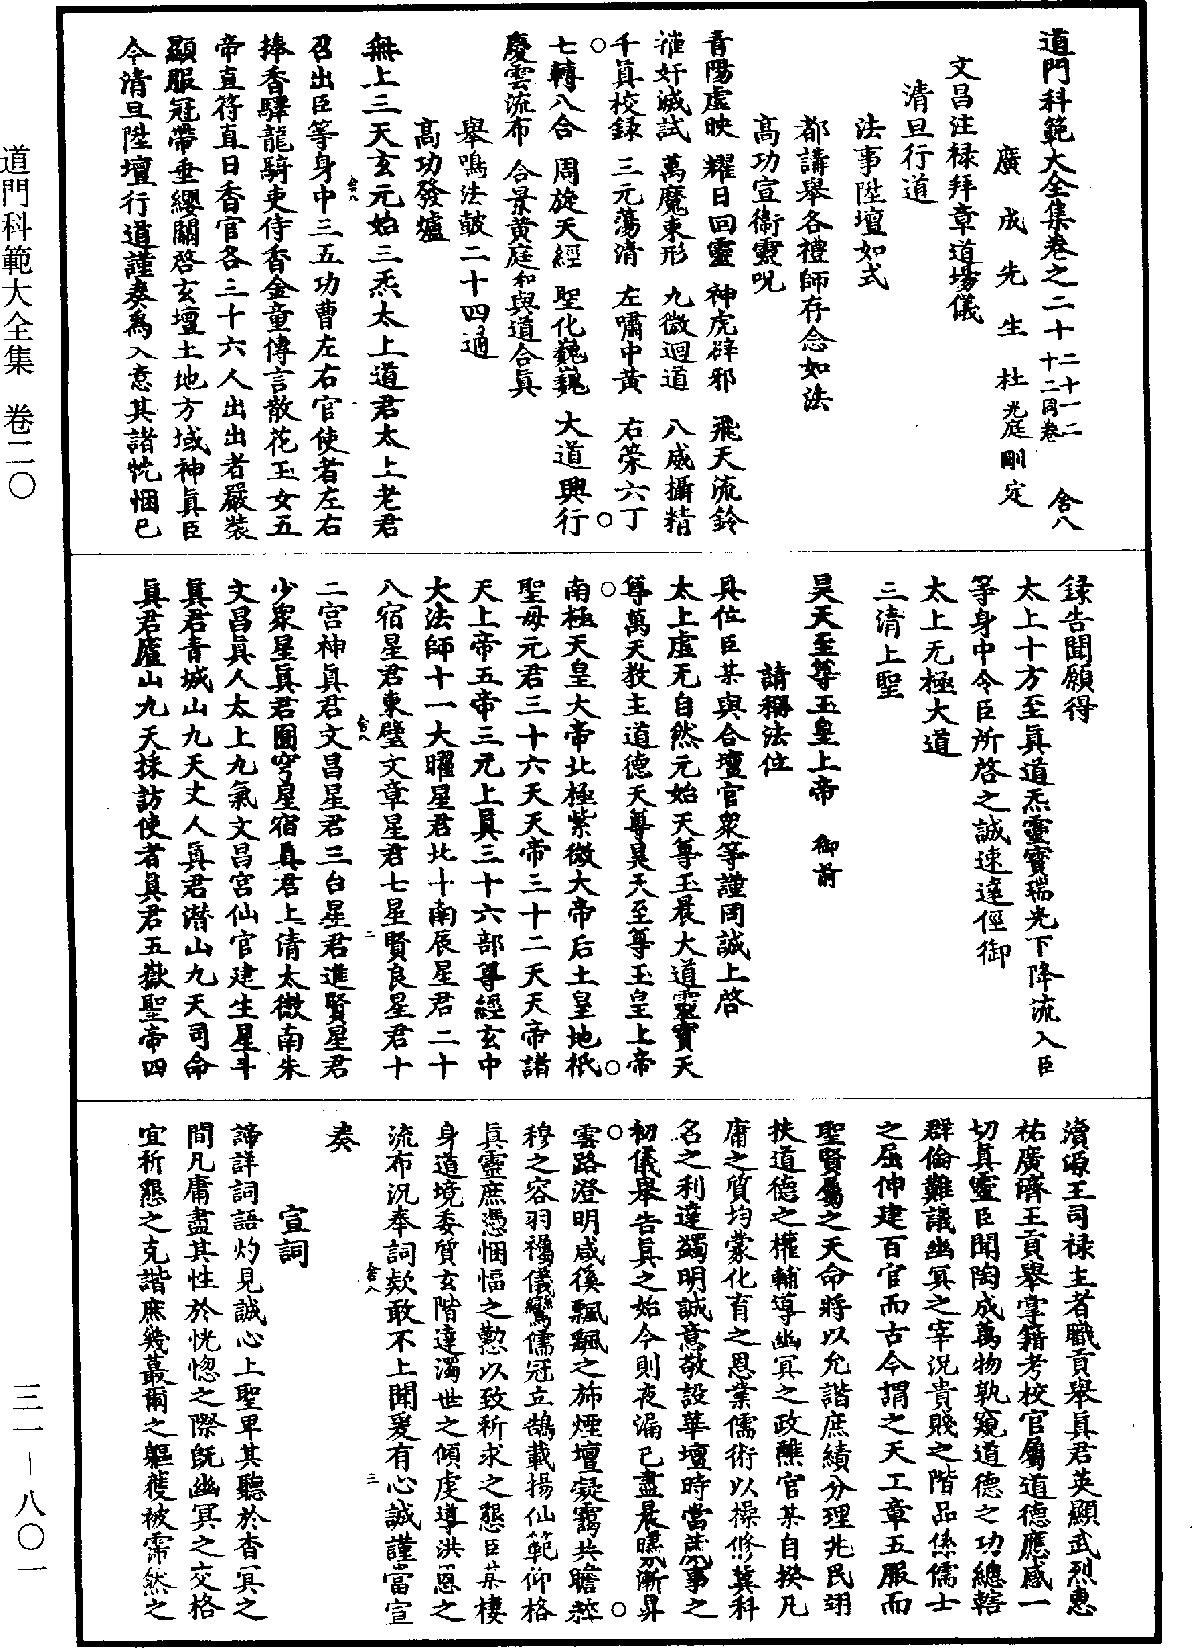 道門科範大全集卷之二十 二十一二十二同卷 舍八
廣成先生杜光庭刪定
文昌注祿拜章道場儀
清旦行道
法事陞壇如式
都講舉各禮師存念如法
高功宣衛靈呪
青陽虛映 耀日回靈 神虎辟邪 飛天流鈴
摧奸滅試 萬魔束形 九微迴道 八威攝精
千眞校錄 三元蕩清 左嘯中黃 右榮六丁
七轉八合 周旋天經 聖化巍巍 大道興行
慶雲流布 合景黃庭 和與道合眞
舉鳴法皷二十四通
高功發爐
無上三天玄元始三炁太上道君太上老君
召出臣等身中三五功曹左右官使者左右
捧香驛龍騎吏侍香金童傳言散花玉女五
帝直符直日香官各三十六人出出者嚴裝
顯服冠帶垂纓關啓玄壇土地方域神眞臣
今清旦陞壇行道謹奏爲入意其諸忱悃已
錄告聞願得
太上十方至眞道炁靈寳瑞光下降流入臣
等身中令臣所啓之誠速達徑御
太上无極大道
三清上聖
昊天至尊玉皇上帝 御前
請稱法位
具位臣某與合壇官衆等謹同誠上啓
太上虛无自然元始天尊玉晨大道靈寳天
尊萬天教主道德天尊昊天至尊玉皇上帝
南極天皇大帝北極紫微大帝后土皇地祇
聖母元君三十六天天帝三十二天天帝諸
天上帝五帝三元上眞三十六部尊經玄中
大法師十一大曜星君北斗南辰星君二十
八宿星君東壁文章星君七星賢良星君十
二宮神眞君文昌星君三台星君進賢星君
少衆星眞君圜穹星宿眞君上清太微南朱
文昌眞人太上九氣文昌宮仙官建生星斗
眞君青城山九天丈人眞君潛山九天司命
眞君廬山九天採訪使者眞君五嶽聖帝四
瀆源王司祿主者職貢舉眞君英顯武烈惠
祐廣濟王貢舉掌籍考校官屬道德應感一
切眞靈臣聞陶成萬物孰窺道德之功總轄
群倫難議幽冥之宰況貴賤之階品係儒士
之屈伸建百官而古今謂之天工章五服而
聖賢屬之天命將以允諧庶績分理兆民翊
扶道德之權輔導幽冥之政醮官某自揆凡
庸之質均蒙化育之恩業儒術以操修冀科
名之利達蠲明誠意敬設華壇時當法事之
初儀舉告眞之始今則夜漏已盡晨曦漸昇
雲路澄明咸徯飄飄之斾煙壇凝靄共瞻穆
穆之容羽襹儀鸞儒冠立鵠載揚仙範仰格
眞靈庶憑悃愊之懃以致祈求之懇臣某棲
身道境委質玄階達濁世之傾虔導洪恩之
流布況奉詞欵敢不上聞爰有心誠謹當宣
奏
宣詞
諦詳詞語灼見誠心上聖卑其聽於杳冥之
間凡庸盡其性於恍惚之際旣幽冥之交格
宜祈懇之克諧庶幾蕞爾之軀獲被霈然之
舍八
舍八 二
舍八 三
道門科範大全集 卷二〇
三一－八〇一